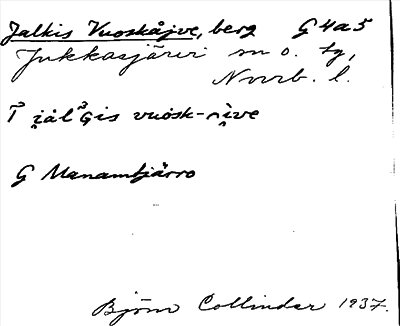 Jalkis Vuoskåjve, berg G4a5
Jukkasjärvi sn o. tg,
Norrb. l.
T i̯ál'g̀is vuósk-ȯi̯ve
G Manamtjärro
Björn Collinder 1937.